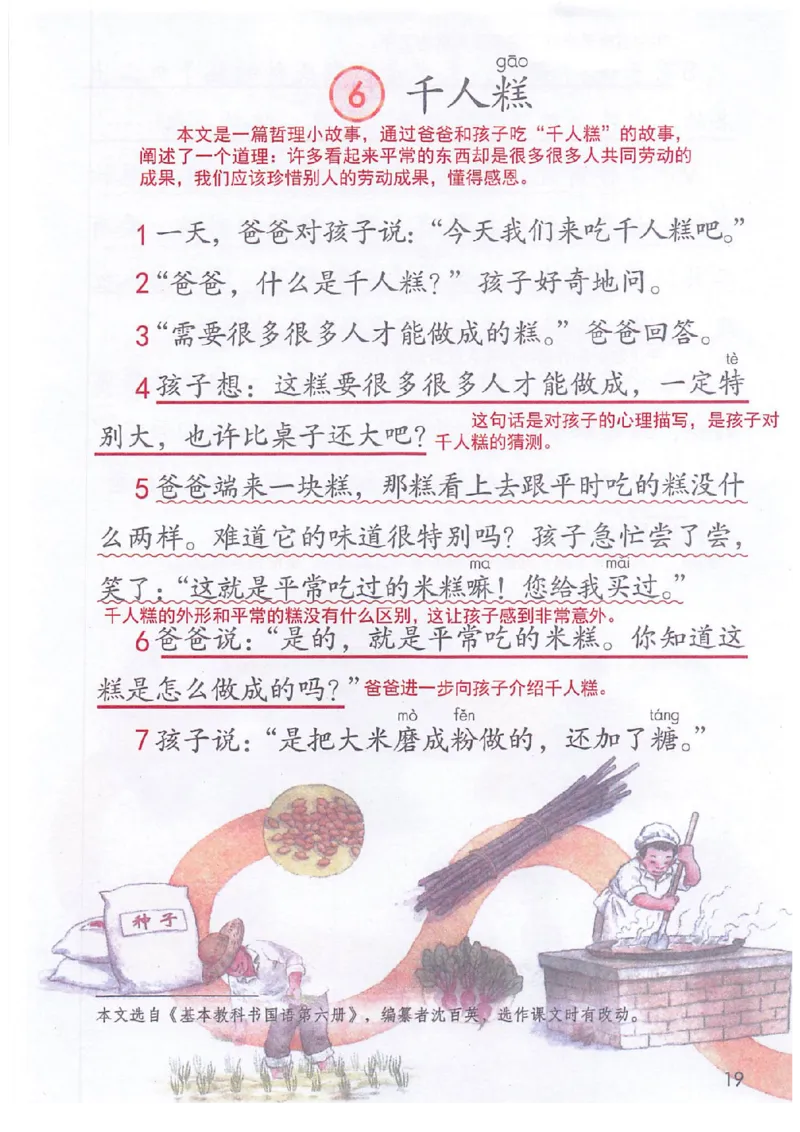 gāo
6 千人糕
本文是一篇哲理小故事，通过爸爸和孩子吃“千人糕”的故事，
阐述了一个道理：许多看起来平常的东西却是很多很多人共同劳动的
成果，我们应该珍惜别人的劳动成果，懂得感恩。
1 一天，爸爸对孩子说：“今天我们来吃千人糕吧。”
2 “爸爸，什么是千人糕？”孩子好奇地问。
3 “需要很多很多人才能做成的糕。”爸爸回答。
tè
4 孩子想：这糕要很多很多人才能做成，一定特
别大，也许比桌子还大吧？
这句话是对孩子的心理描写，是孩子对
千人糕的猜测。
5 爸爸端来一块糕，那糕看上去跟平时吃的糕没什
么两样。难道它的味道很特别吗？孩子急忙尝了尝，
ma mǎi
笑了：“这就是平常吃过的米糕嘛！您给我买过。”
千人糕的外形和平常的糕没有什么区别，这让孩子感到非常意外。
6 爸爸说：“是的，就是平常吃的米糕。你知道这
糕是怎么做成的吗？”爸爸进一步向孩子介绍千人糕。
mò fěn táng
7 孩子说：“是把大米磨成粉做的，还加了糖。”
种子
本文选自《基本教科书国语第六册》，编纂者沈百英，选作课文时有改动。
19